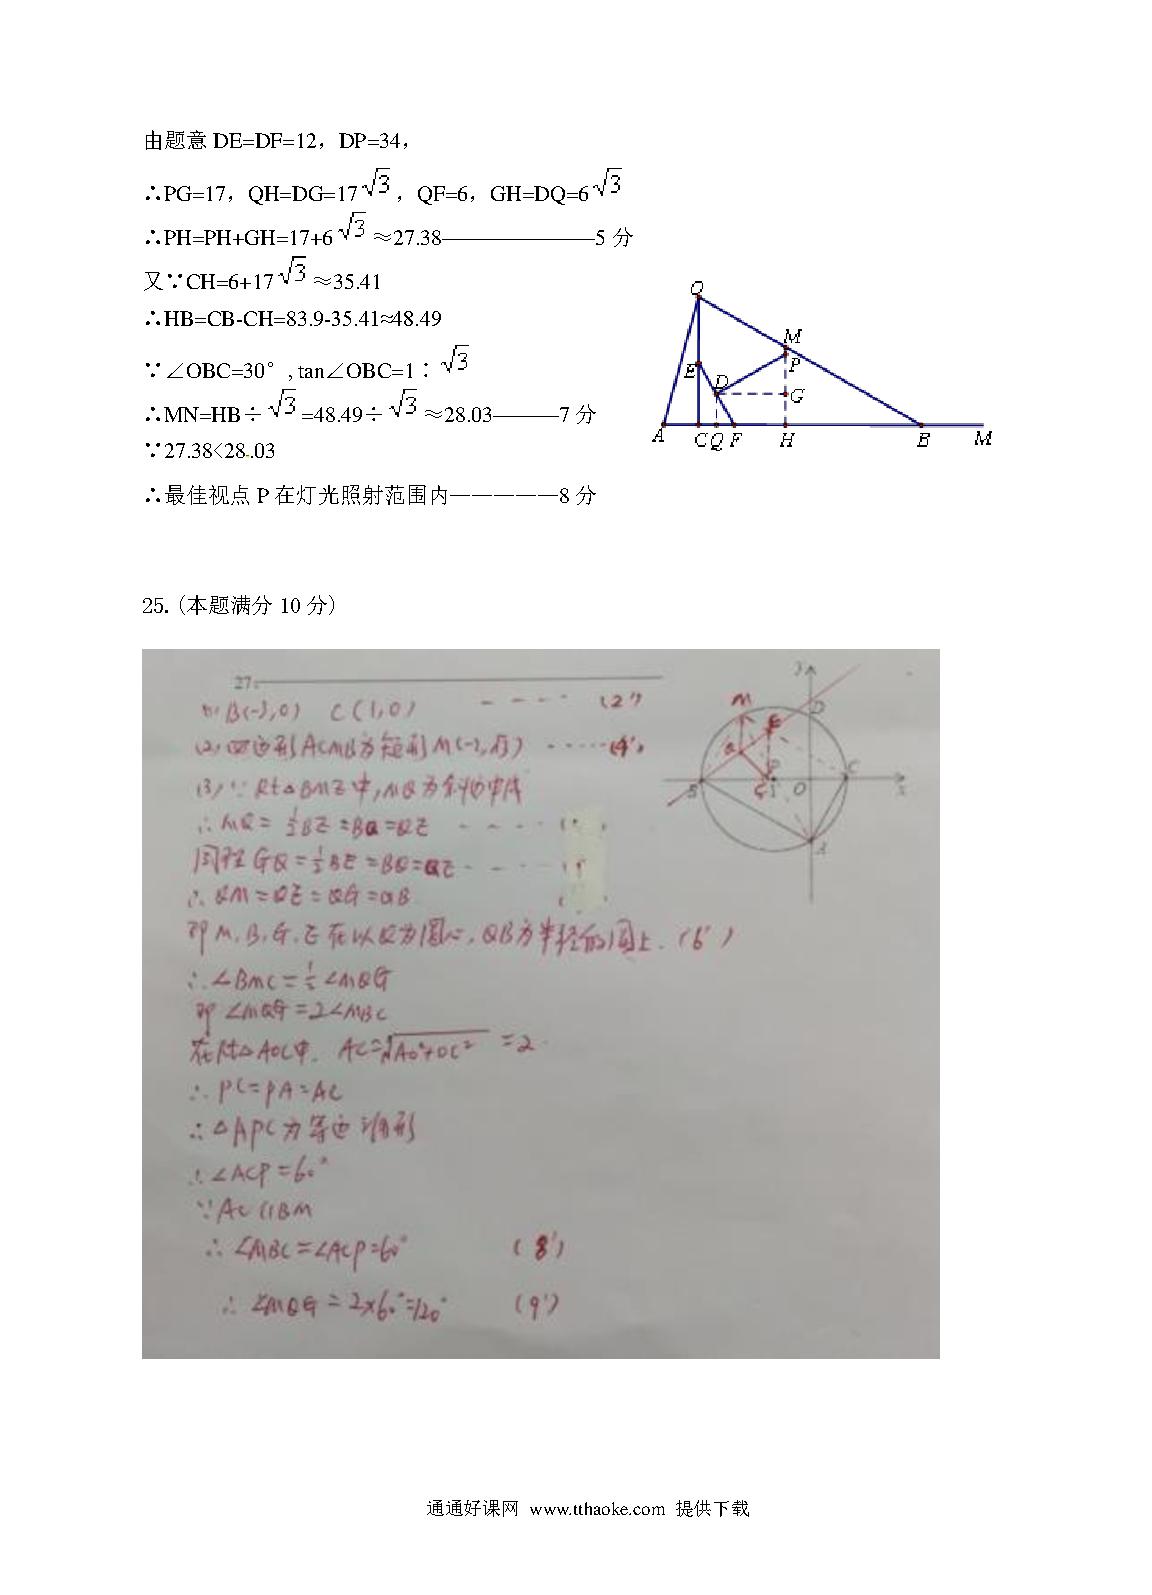 由题意 DE=DF=12，DP=34，
∴PG=17，QH=DG=17√3，QF=6，GH=DQ=6√3
∴PH=PH+GH=17+6√3≈27.38———————5 分
又∵CH=6+17√3≈35.41
∴HB=CB-CH=83.9-35.41≈48.49
∵∠OBC=30°, tan∠OBC=1：√3
∴MN=HB÷√3=48.49÷√3≈28.03———7 分
∵27.38<28.03
∴最佳视点 P 在灯光照射范围内—————8 分
O
M
E
D
P
G
A
C
Q
F
H
B
M
25. (本题满分 10 分)
27.
(1) B(-3,0) C(1,0) - - - - (2')
(2) 四边形ACMB为矩形 M(-2,√3) ·····(4')
(3) ∵ Rt△BMZ中,MQ为斜边中线
∴ MQ = 1/2BZ =BQ =QZ
同理 GQ=1/2BZ=BQ=QZ
∴ QM=QZ=QG=QB
即M、B、G、Z在以Q为圆心,QB为半径的圆上. (6')
∴∠BMC=1/2∠MQG
即 ∠MQG=2∠MBC
在Rt△AOC中. AC=√AO²+OC² =2
∴ PC=PA=AC
∴△APC为等边三角形
∴∠ACP=60°
∵AC∥BM
∴ ∠MBC=∠ACP=60° (8')
∴ ∠MQG=2×60°=120° (9')
M
E
D
Q
B
G
P
O
C
x
A
通通好课网 www.tthaoke.com 提供下载